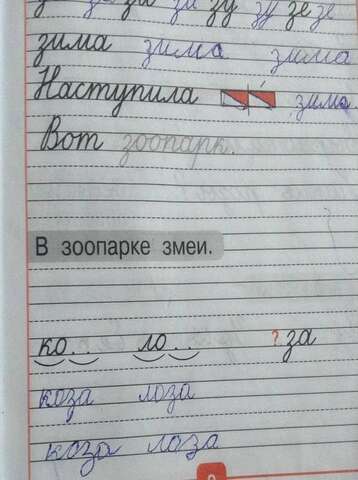 за зи зу зу зе зе
зима зима зима
Наступила зима.
Вот зоопарк.
В зоопарке змеи.
ко... ло... ? за
коза лоза
коза лоза